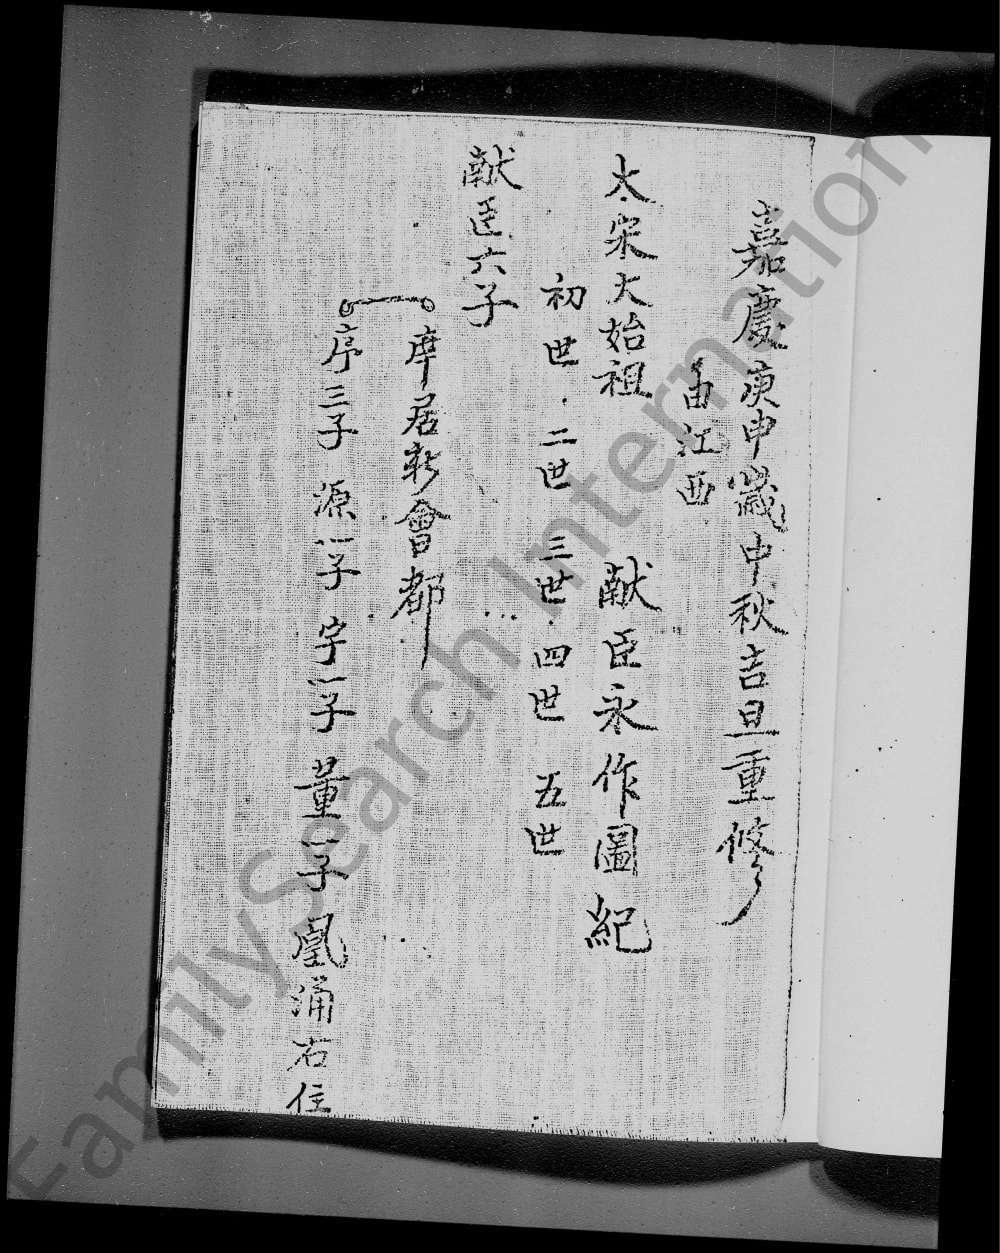 嘉慶庚申歲中秋吉旦重修
由江西
太宋大始祖 献臣永作圖紀
初世 二世 三世 四世 五世
献臣六子
庠居新會都
序三子 源一子 字一子 董一子 凰涌右住
FamilySearch International